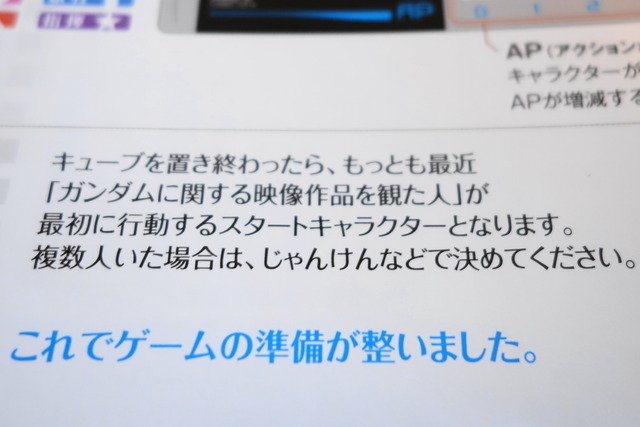 指揮★
AP
0 1 2
AP(アクション
キャラクターが
APが増減する
キューブを置き終わったら、もっとも最近
「ガンダムに関する映像作品を観た人」が
最初に行動するスタートキャラクターとなります。
複数人いた場合は、じゃんけんなどで決めてください。
これでゲームの準備が整いました。